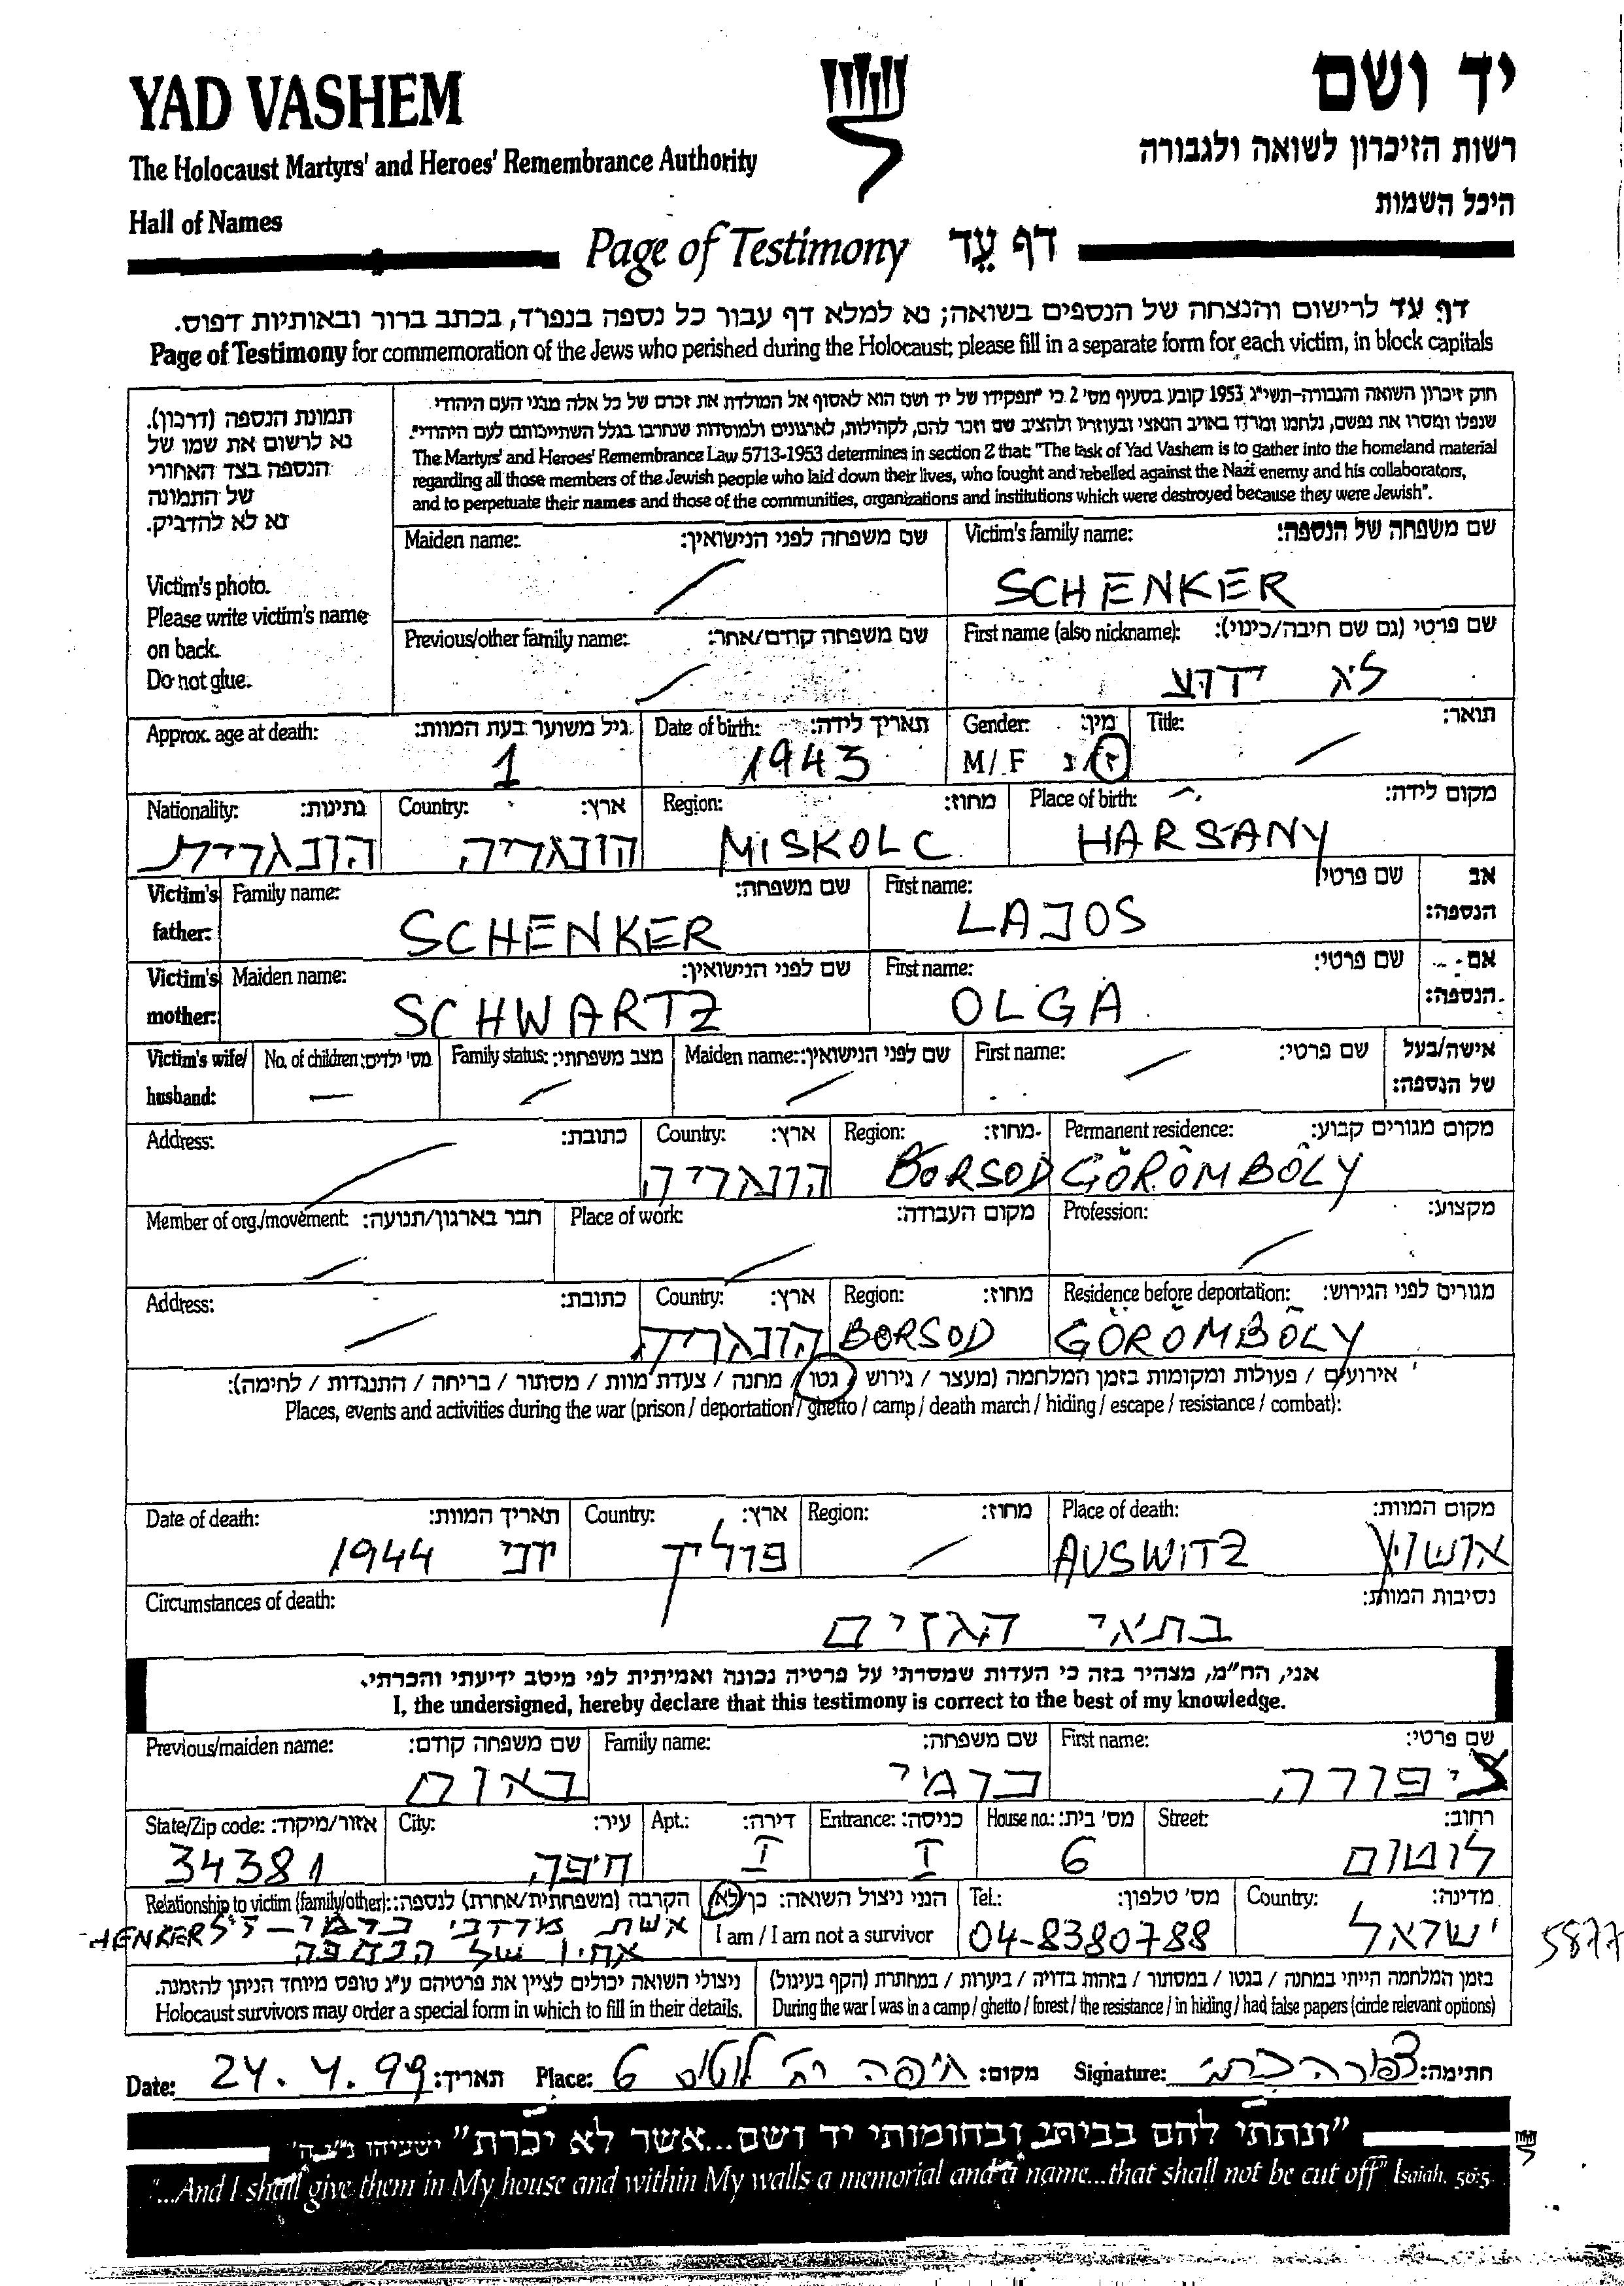 YAD VASHEM
יד ושם
The Holocaust Martyrs' and Heroes' Remembrance Authority
רשות הזיכרון לשואה ולגבורה
Hall of Names
היכל השמות
Page of Testimony דף עֵד
דף עד לרישום והנצחה של הנספים בשואה; נא למלא דף עבור כל נספה בנפרד, בכתב ברור ובאותיות דפוס.
Page of Testimony for commemoration of the Jews who perished during the Holocaust; please fill in a separate form for each victim, in block capitals
תמונת הנספה (דרכון).
נא לרשום את שמו של
הנספה בצד האחורי
של התמונה
נא לא להדביק.
Victim's photo.
Please write victim's name
on back.
Do not glue.
חוק זיכרון השואה והגבורה-תשי"ג 1953 קובע בסעיף מס' 2 כי "תפקידו של יד ושם הוא לאסוף אל המולדת את זכרם של כל אלה מבני העם היהודי,
שנפלו ומסרו את נפשם, נלחמו ומרדו באויב הנאצי ובעוזריו ולהציב שם וזכר להם, לקהילות, לארגונים ולמוסדות שנחרבו בגלל השתייכותם לעם היהודי".
The Martyrs' and Heroes' Remembrance Law 5713-1953 determines in section 2 that: "The task of Yad Vashem is to gather into the homeland material
regarding all those members of the Jewish people who laid down their lives, who fought and rebelled against the Nazi enemy and his collaborators,
and to perpetuate their names and those of the communities, organizations and institutions which were destroyed because they were Jewish".
Maiden name: שם משפחה לפני הנישואין: Victim's family name: שם משפחה של הנספה:
SCHENKER
Previous/other family name: שם משפחה קודם/אחר: First name (also nickname): שם פרטי (גם שם חיבה/כינוי):
לא ידוע
Approx. age at death: גיל משוער בעת המוות: Date of birth: תאריך לידה: Gender: מין: Title: תואר:
1 1943 M/F ז/נ
Nationality: נתינות: Country: ארץ: Region: מחוז: Place of birth: מקום לידה:
הונגרית הונגריה MISKOLC HARSANY
Victim's father: Family name: שם משפחה: First name: שם פרטי: אב הנספה:
SCHENKER LAJOS
Victim's mother: Maiden name: שם לפני הנישואין: First name: שם פרטי: אם הנספה:
SCHWARTZ OLGA
Victim's wife/husband: No. of children: מס' ילדים: Family status: מצב משפחתי: Maiden name: שם לפני הנישואין: First name: שם פרטי: אישה/בעל של הנספה:
Address: כתובת: Country: ארץ: Region: מחוז: Permanent residence: מקום מגורים קבוע:
הונגריה BORSOD GÖRÖMBÖLY
Member of org./movement: חבר בארגון/תנועה: Place of work: מקום העבודה: Profession: מקצוע:
Address: כתובת: Country: ארץ: Region: מחוז: Residence before deportation: מגורים לפני הגירוש:
הונגריה BORSOD GÖRÖMBÖLY
אירועים / פעולות ומקומות בזמן המלחמה (מעצר / גירוש / גטו / מחנה / צעדת מוות / מסתור / בריחה / התנגדות / לחימה):
Places, events and activities during the war (prison / deportation / ghetto / camp / death march / hiding / escape / resistance / combat):
Date of death: תאריך המוות: Country: ארץ: Region: מחוז: Place of death: מקום המוות:
יוני 1944 פולין AUSWITZ אושויץ
Circumstances of death: נסיבות המוות:
בתאי הגזים
אני, הח"מ, מצהיר בזה כי העדות שמסרתי על פרטיה נכונה ואמיתית לפי מיטב ידיעתי והכרתי.
I, the undersigned, hereby declare that this testimony is correct to the best of my knowledge.
Previous/maiden name: שם משפחה קודם: Family name: שם משפחה: First name: שם פרטי:
באום כרמי ציפורה
State/Zip code: אזור/מיקוד: City: עיר: Apt.: דירה: Entrance: כניסה: House no.: מס' בית: Street: רחוב:
34381 חיפה I I 6 לוטוס
Relationship to victim (family/other): הקרבה (משפחתית/אחרת) לנספה: הנני ניצול השואה: כן/לא Tel.: מס' טלפון: Country: מדינה:
אשת מרדכי כרמי -
HENKER
אחיו של הנספה
I am / I am not a survivor 04-8380788 ישראל
5877
ניצולי השואה יכולים לציין את פרטיהם ע"ג טופס מיוחד הניתן להזמנה.
Holocaust survivors may order a special form in which to fill in their details.
בזמן המלחמה הייתי במחנה / בגטו / במסתור / בזהות בדויה / ביערות / במחתרת (הקף בעיגול)
During the war I was in a camp / ghetto / forest / the resistance / in hiding / had false papers (circle relevant options)
Date: 24.4.99 תאריך: Place: חיפה רח' לוטוס 6 מקום: Signature: ציפורה כרמי חתימה:
"ונתתי להם בביתי ובחומותי יד ושם...אשר לא יכרת" ישעיהו נ"ו ה'
"...And I shall give them in My house and within My walls a memorial and a name...that shall not be cut off" Isaiah. 56:5